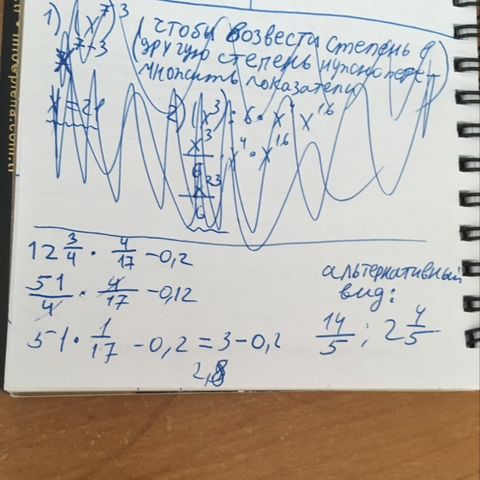 1) (x⁷)³
(чтобы возвести степень в
другую степень нужно пере-
множить показатели)
x^7·3
x = 21
2) (x³) : 6 · x⁴ x¹⁶
x³/6 · x⁴ · x¹⁶
x²³/6
12 3/4 · 4/17 - 0,2
51/4 · 4/17 - 0,12
51 · 1/17 - 0,2 = 3 - 0,2
2,8
альтернативный
вид:
14/5 ; 2 4/5